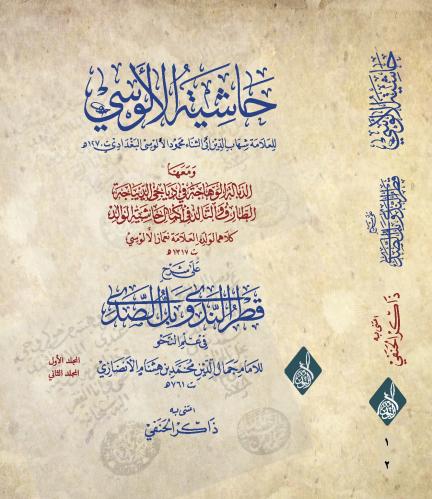 حاشية الألوسي
للعلامة شهاب الدين أبي الثناء محمود الألوسي البغدادي ت ١٢٧٠هـ
ومعها
الطارف والتالد في إكمال حاشية الوالد
كلاهما لولده العلامة نعمان الألوسي
ت ١٣١٧هـ
على شرح
قطر الندى وبل الصدى
في علم النحو
للإمام جمال الدين محمد بن هشام الأنصاري
ت ٧٦١هـ
اعتنى به
ذاكر الحنفي
المجلد الأول
المجلد الثاني
حاشية الألوسي
على شرح
قطر الندى وبل الصدى
اعتنى به
ذاكر الحنفي
١
٢